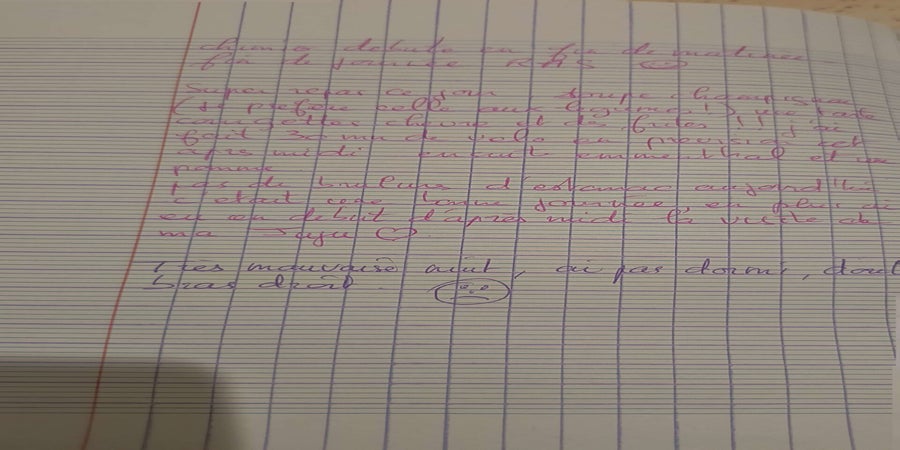 debute en fin de matinée
fin de journée RAS
Super repas ce jour soupe champignon
(je préfère celle aux légumes!), une
courgettes chèvre et des frites !!! j'ai
fait 30 mn de vélo en prévision cet
après midi ensuite emmenthal et une
pomme.
pas de brulures d'estomac aujourd'hui
c'était une longue journée, en plus ai
eu en début d'après midi la visite de
ma
très mauvaise nuit, ai pas dormi, doul
bras droit.